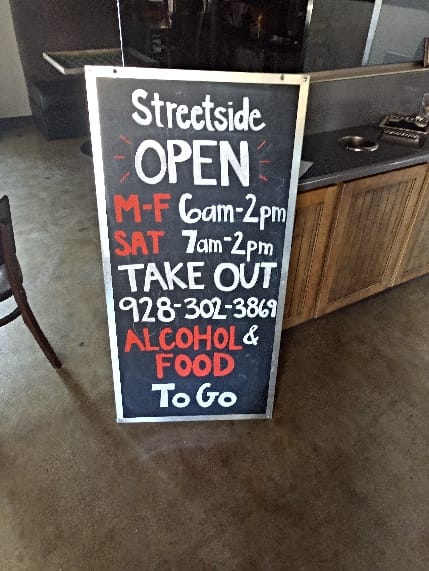 Streetside
OPEN
M-F 6am-2pm
SAT 7am-2pm
TAKE OUT
928-302-3869
ALCOHOL &
FOOD
To Go